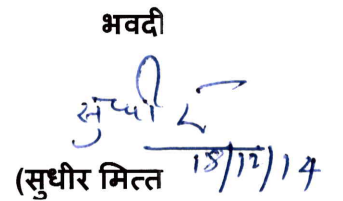 भवदी
सुधीर
18/12/14
(सुधीर मित्त